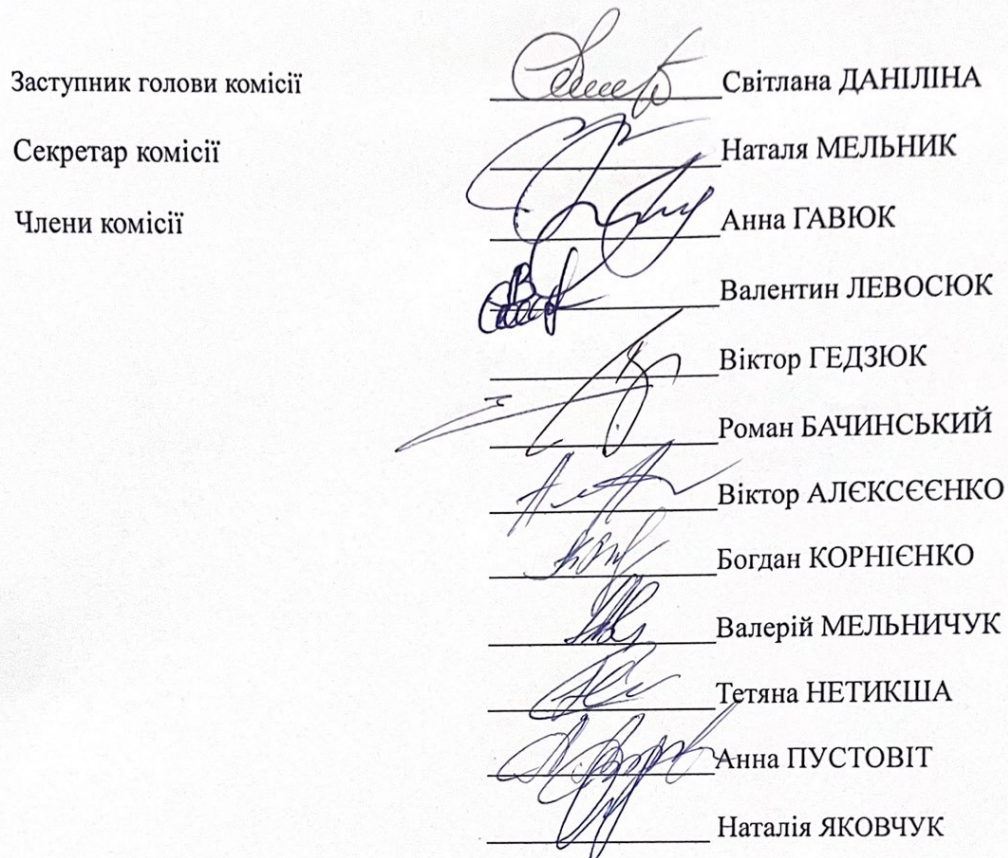 Заступник голови комісії Світлана ДАНІЛІНА
Секретар комісії Наталя МЕЛЬНИК
Члени комісії Анна ГАВЮК
Валентин ЛЕВОСЮК
Віктор ГЕДЗЮК
Роман БАЧИНСЬКИЙ
Віктор АЛЄКСЄЄНКО
Богдан КОРНІЄНКО
Валерій МЕЛЬНИЧУК
Тетяна НЕТИКША
Анна ПУСТОВІТ
Наталія ЯКОВЧУК